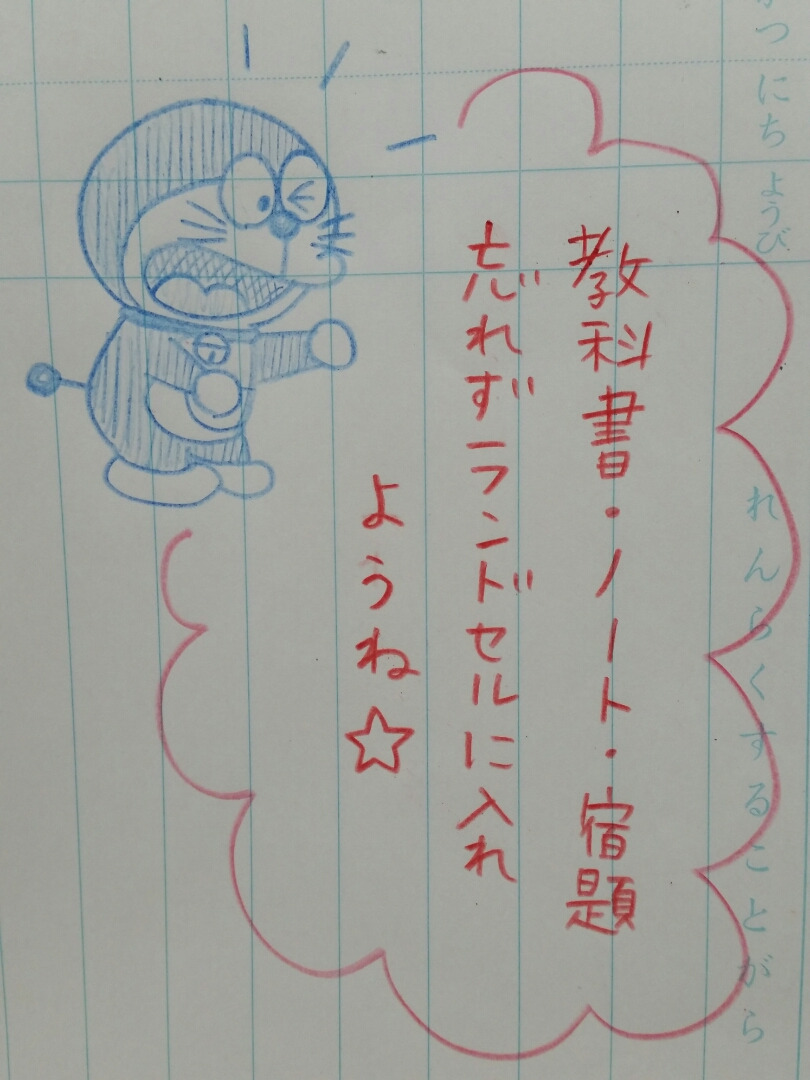 がつ にち ようび
れんらくすることがら
教科書・ノート・宿題
忘れずランドセルに入れ
ようね☆